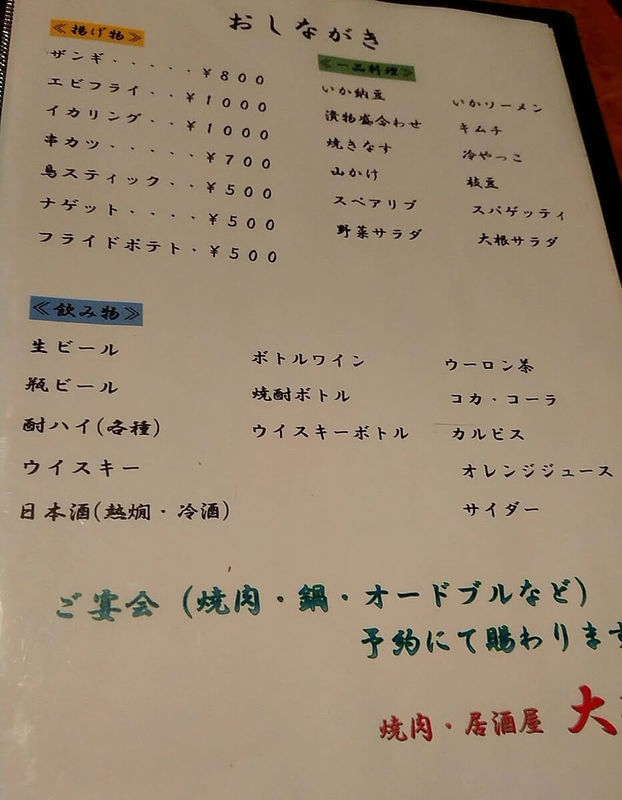 おしながき
≪揚げ物≫
ザンギ・・・・・¥８００
エビフライ・・¥１０００
イカリング・・¥１０００
串カツ・・・・・¥７００
鳥スティック・・¥５００
ナゲット・・・・¥５００
フライドポテト・¥５００
≪一品料理≫
いか納豆 いかソーメン
漬物盛合わせ キムチ
焼きなす 冷やっこ
山かけ 枝豆
スペアリブ スパゲッティ
野菜サラダ 大根サラダ
≪飲み物≫
生ビール ボトルワイン ウーロン茶
瓶ビール 焼酎ボトル コカ・コーラ
酎ハイ(各種) ウイスキーボトル カルピス
ウイスキー オレンジジュース
日本酒(熱燗・冷酒) サイダー
ご宴会(焼肉・鍋・オードブルなど)
予約にて賜わります
焼肉・居酒屋 大